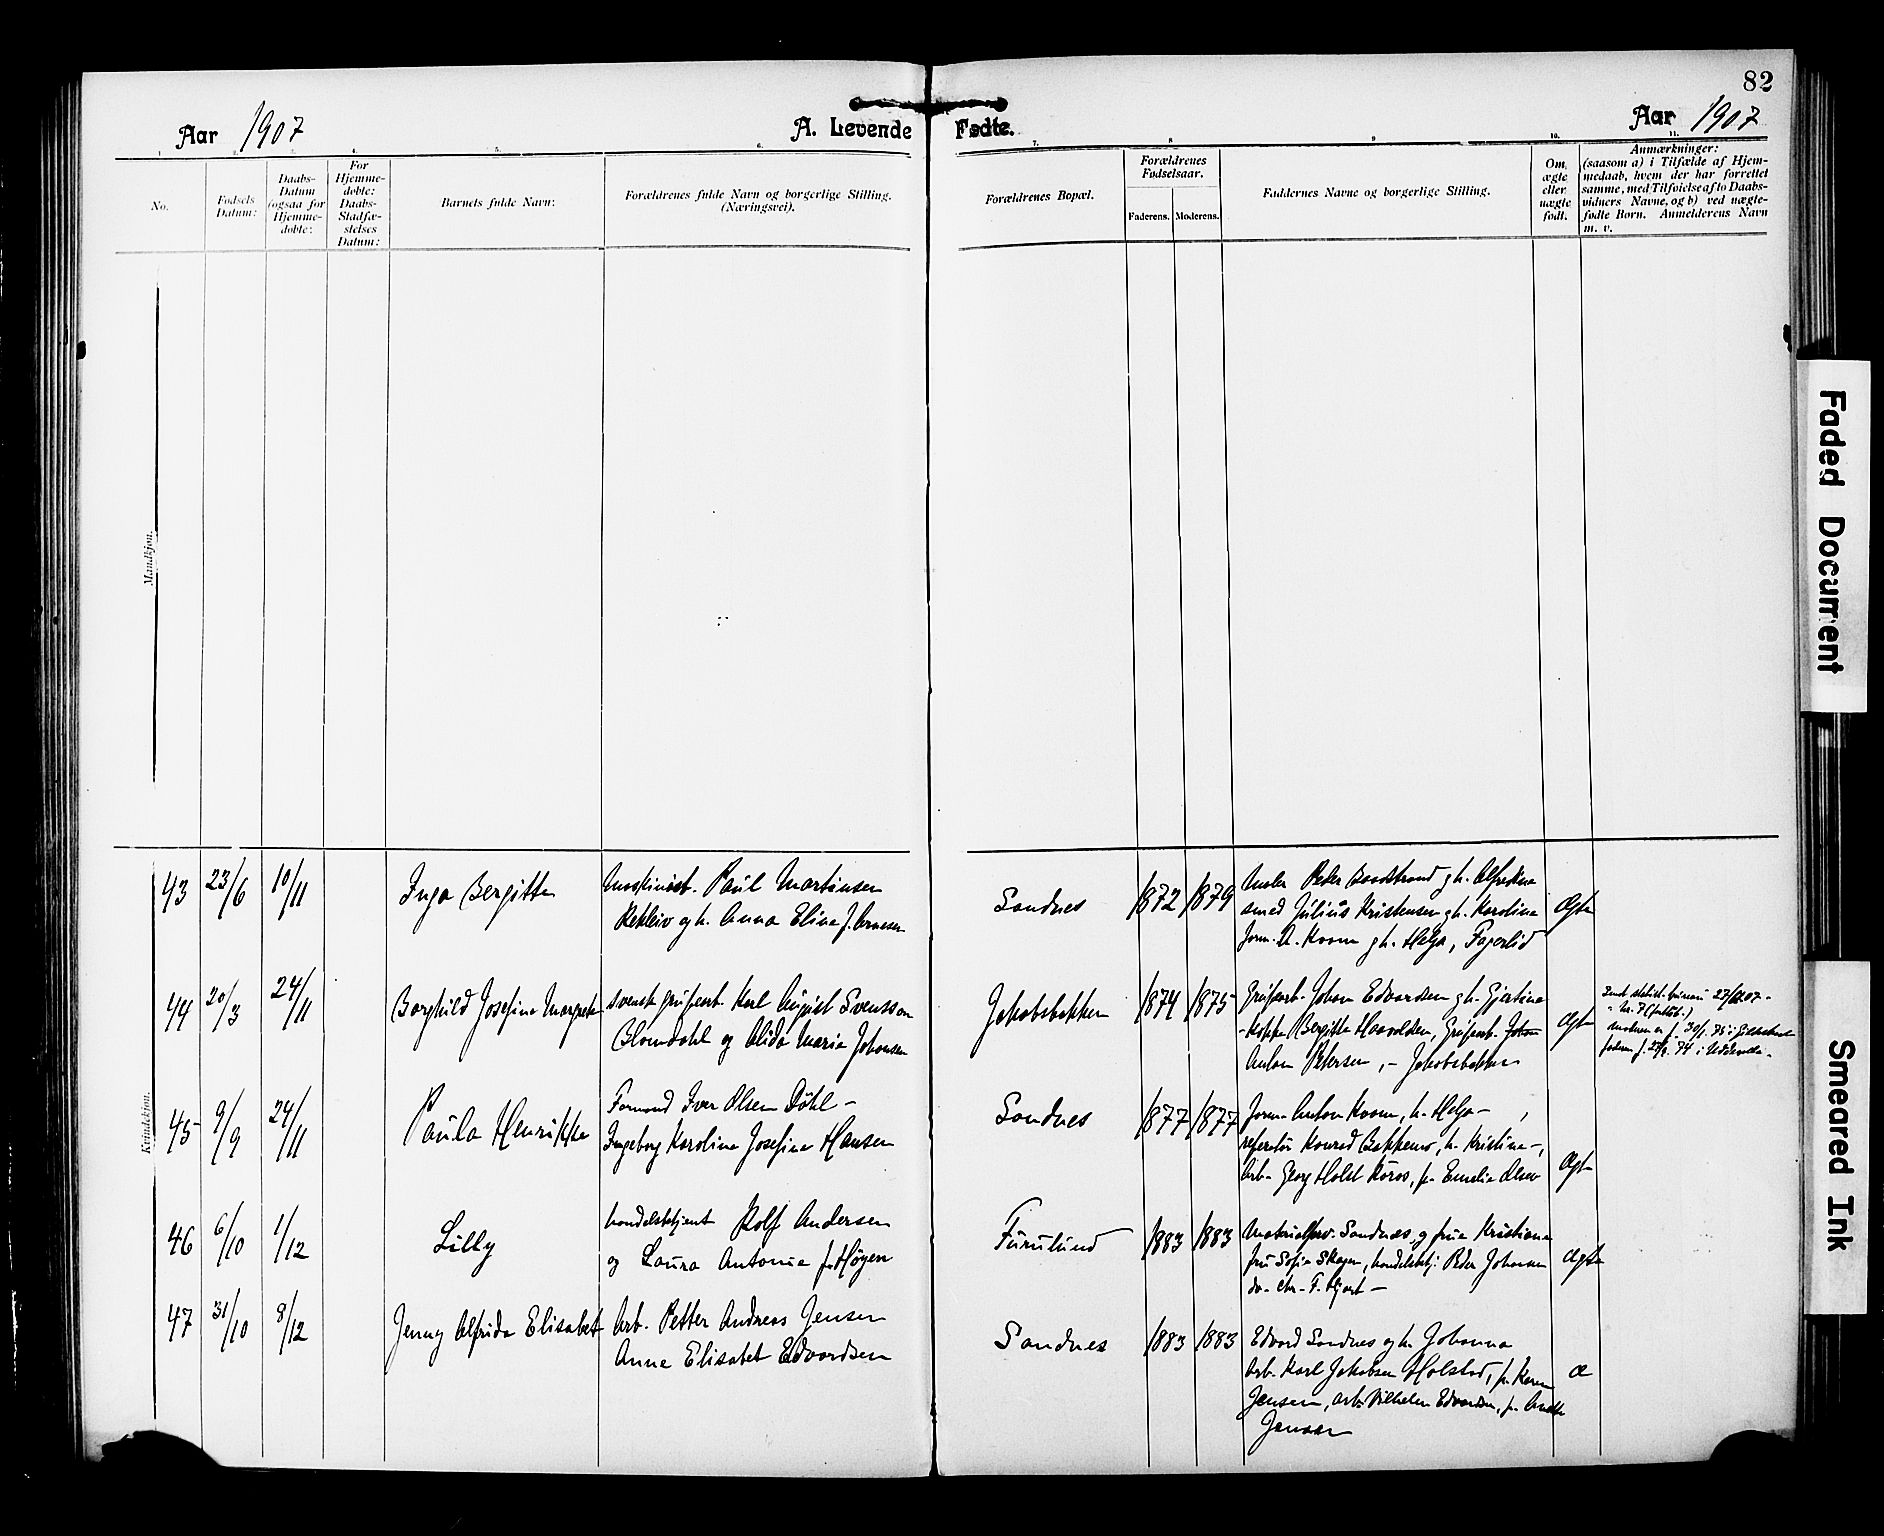 82
Aar 1907
A. Levende Fødte.
Aar 1907
1.
2.
3.
4.
5.
6.
7.
8.
9.
10.
11.
No.
Fødsels Datum:
Daabs-Datum (ogsaa for Hjemme-døbte:
For Hjemme-døbte: Daabs-Stadfæ-stelses Datum:
Barnets fulde Navn:
Forældrenes fulde Navn og borgerlige Stilling. (Næringsvei).
Forældrenes Bopæl.
Forældrenes Fødselsaar.
Faderens. Moderens.
Faddernes Navne og borgerlige Stilling.
Om ægte eller uægte født.
Anmærkninger:
(saasom a) i Tilfælde af Hjem-
medaab, hvem der har forrettet
samme, med Tilføielse af to Daabs-
vidners Navne, og b) ved uægte-
fødte Børn. Anmelderens Navn
m. v.
Mandkjøn.
Kvindekjøn.
43 23/6 10/11 Inga Bergitte
Maskinist. Paul Martinsen
Rekleiv og h. Anna Elina f. Arnesen
Sandnes 1872 1879
Maler Peter Sandstrand og h. Alfredine
smed Julius Kristensen og h. Karoline
form. A. Kvam og h. Helga, Fagerlid
Ægte
44 20/3 24/11 Borghild Josefine Margrete
svensk grubearb. Karl August Svensson
Blomdahl og Alida Maria Johansen
Jakobsbakken 1874 1875
Grubearb. Johan Edvardsen og h. Gjertine
kokke Bergitte Haavoldsen, Grubearb. Johan
Anton Petersen, - Jakobsbakken
Ægte
45 9/9 24/11 Paula Henrikke
Formand Iver Olsen Døhl -
Ingeborg Karoline Josefine Hansen
Sandnes 1877 1877
form. Anton Kvam, h. Helga -,
Konrad Bakkemo, h. Kristine -,
Arb. Georg Holst Røros, fr. Emelie Olsen
Ægte
46 6/10 1/12 Lilly
handelsbetjent Rolf Andersen
og Laura Antonie f. Høyen
Furulund 1883 1883
Materialforv. Sandnes og frue Kristiane
fru Sofie Skagen, handelsbetj. Peder Johansen
do. Chr. F. Hjort -
Ægte
47 31/10 8/12 Jenny Alfrida Elisabet
Arb. Petter Andreas Jensen
Anna Elisabet Edvardsen
Sandnes 1883 1883
Edvard Sandnes og h. Johanna
Arb. Karl Jakobsen Holstad, fr. Karen
Jensen, arb. Vilhelm Edvardsen, fr. Anette
Jensen
Æ
Faded Document
Smeared Ink